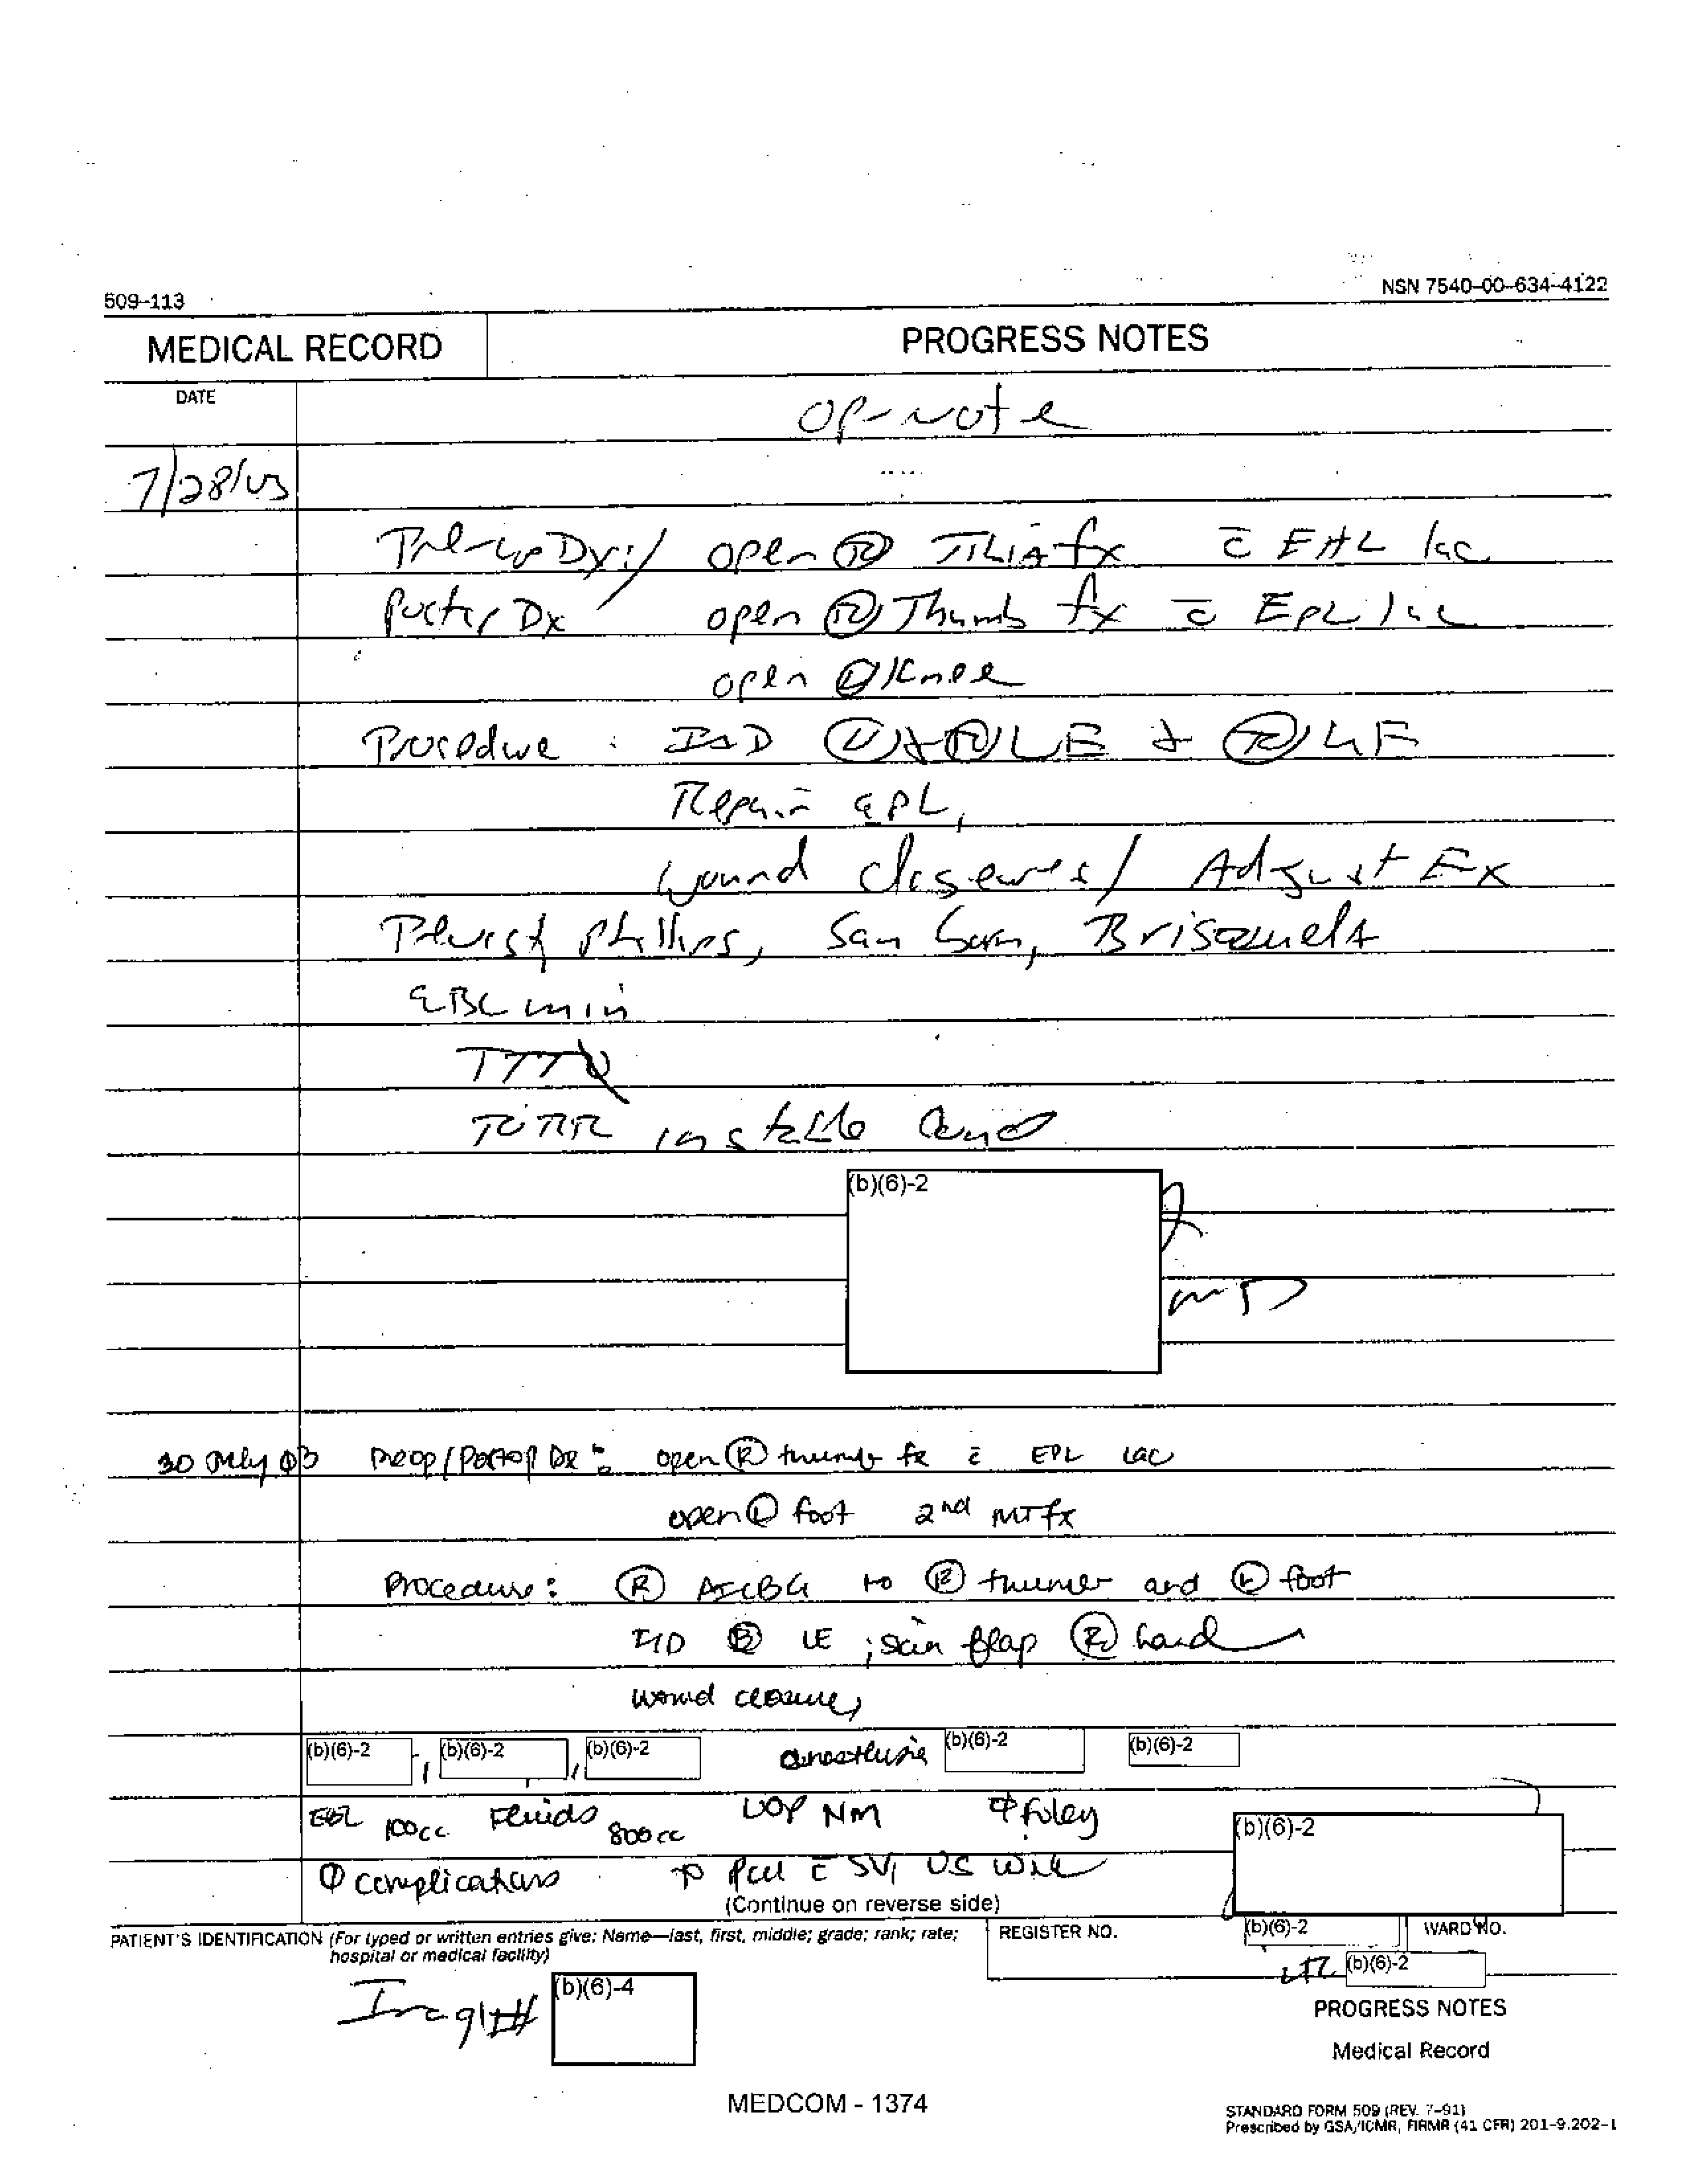 509-113
NSN 7540-00-634-4122
MEDICAL RECORD
PROGRESS NOTES
DATE
Op-Note
7/28/03
Pre-op Dx:/ open Ⓡ Tibia fx c̄ EHL lac
Postop Dx open Ⓡ Thumb fx c̄ EPL lac
open Ⓛ Knee
Procedure : I&D Ⓛ+Ⓡ LE + Ⓡ UE
Repair EPL,
wound closures / Adjust Ex
Phillips, San Brisquela
EBL min
TTT
To RR in stable cond
(b)(6)-2
MD
30 July 03 Preop/Postop Dx: open Ⓡ thumb fx c̄ EPL lac
open Ⓛ foot 2nd MT fx
Procedure: Ⓡ AICBG to Ⓡ thumb and Ⓛ foot
I+D Ⓑ LE ; skin flap Ⓡ hand
wound closure,
(b)(6)-2 , (b)(6)-2 , (b)(6)-2 anesthesia (b)(6)-2 (b)(6)-2
EBL 100cc Fluids 800cc UOP NM Ø foley
(b)(6)-2
Ø complications → PCU c̄ SV, VS WNL
(Continue on reverse side)
PATIENT'S IDENTIFICATION (For typed or written entries give: Name—last, first, middle; grade; rank; rate; hospital or medical facility)
REGISTER NO.
(b)(6)-2
WARD NO.
LTC (b)(6)-2
Iraqi # (b)(6)-4
PROGRESS NOTES
Medical Record
MEDCOM - 1374
STANDARD FORM 509 (REV. 7-91)
Prescribed by GSA/ICMR, FIRMR (41 CFR) 201-9.202-1